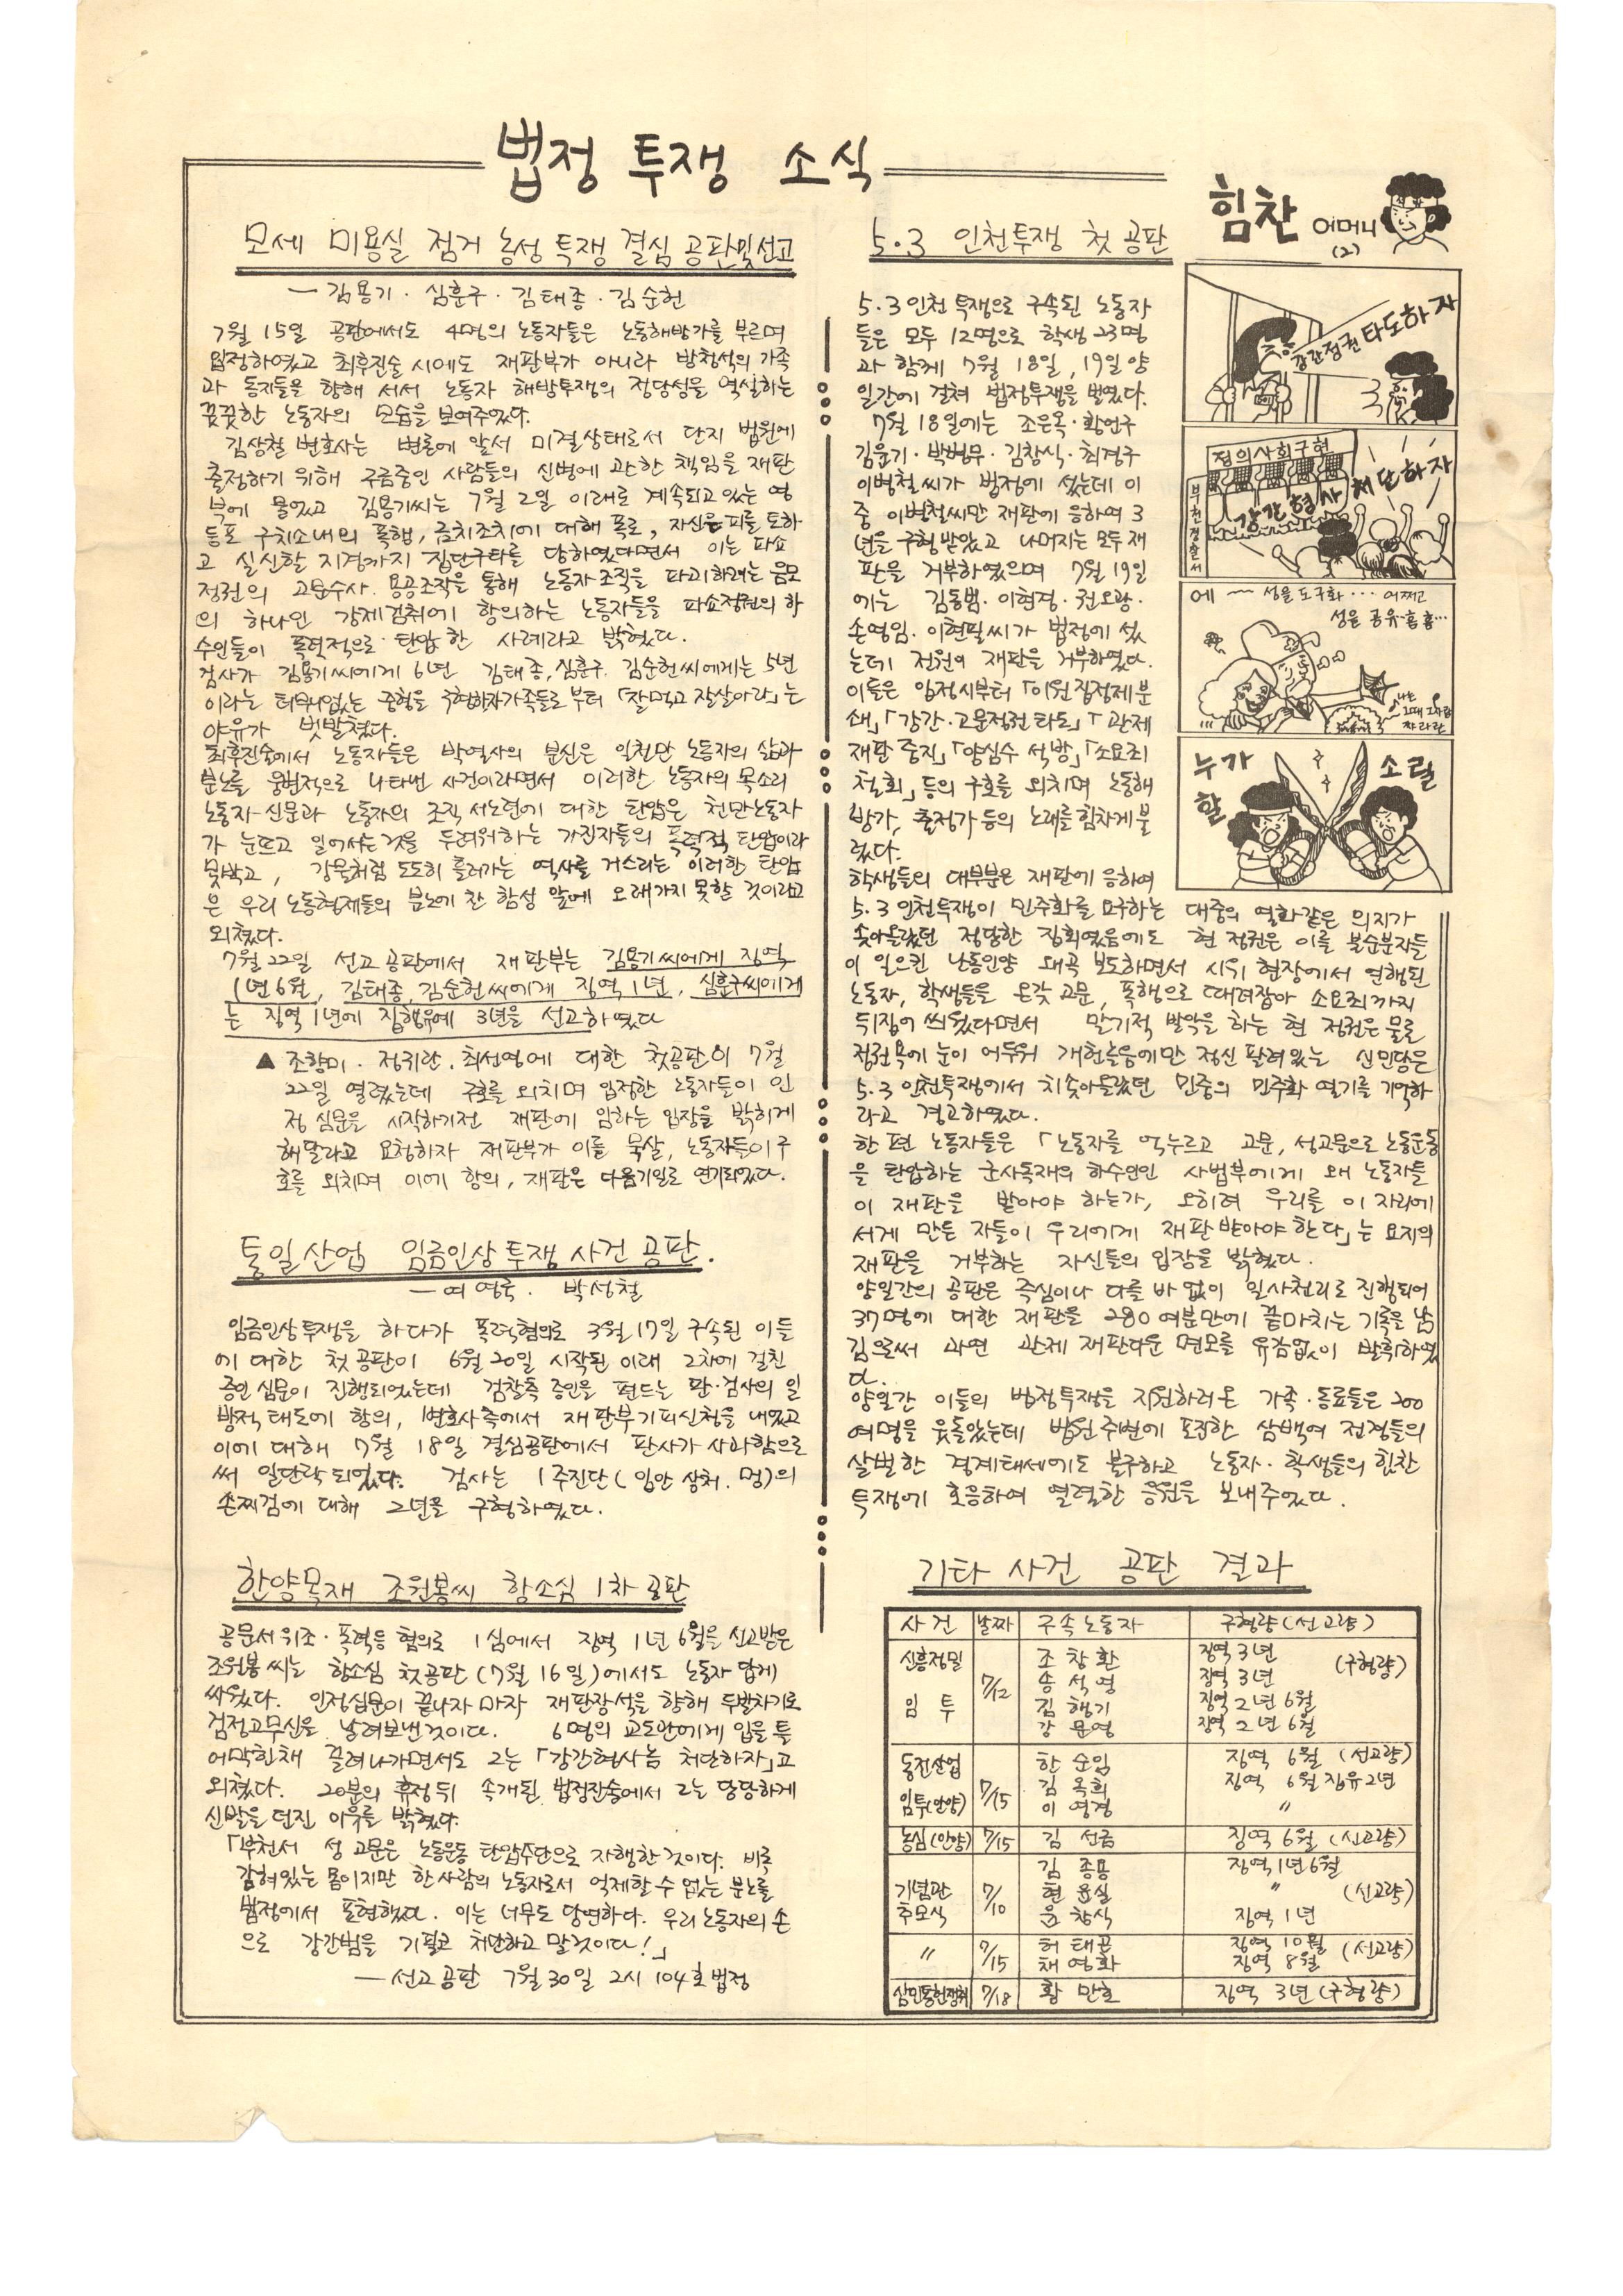 법정 투쟁 소식
모세 미용실 점거 농성 투쟁 결심 공판및선고
— 김용기 · 심훈구 · 김태종 · 김순헌
7월 15일 공판에서도 4명의 노동자들은 노동해방가를 부르며
입정하였고 최후진술 시에도 재판부가 아니라 방청석의 가족
과 동지들을 향해 서서 노동자 해방투쟁의 정당성을 역설하는
꿋꿋한 노동자의 모습을 보여주었다.
김상철 변호사는 변론에 앞서 미결상태로서 단지 법원에
출정하기 위해 구금중인 사람들의 신병에 관한 책임을 재판
부에 물었고 김용기씨는 7월 2일 이래로 계속되고 있는 영
등포 구치소내의 폭행, 금치조치에 대해 폭로, 자신은 피를 토하
고 실신할 지경까지 집단구타를 당하였다면서 이는 파쇼
정권의 고문수사. 용공조작을 통해 노동자 조직을 파괴하려는 음모
의 하나인 강제검취에 항의하는 노동자들을 파쇼정권의 하
수인들이 폭력적으로 탄압한 사례라고 밝혔다.
검사가 김용기씨에게 6년 김태종, 심훈구. 김순헌씨에게는 5년
이라는 터무니없는 중형을 구형하자 가족들로부터 「잘먹고 잘살아라」는
야유가 빗발쳤다.
최후진술에서 노동자들은 박열사의 분신은 일천만 노동자의 삶과
분노를 웅변적으로 나타낸 사건이라면서 이러한 노동자의 목소리
노동자신문과 노동자의 조직 서노련에 대한 탄압은 천만노동자
가 눈뜨고 일어서는것을 두려워하는 가진자들의 폭력적 탄압이라
못박고, 강물처럼 도도히 흘러가는 역사를 거스르는 이러한 탄압
은 우리 노동형제들의 분노에 찬 함성 앞에 오래가지 못할 것이라고
외쳤다.
7월 22일 선고 공판에서 재판부는 김용기씨에게 징역
1년 6월, 김태종, 김순헌씨에게 징역 1년, 심훈구씨에게
는 징역 1년에 집행유예 3년을 선고하였다
▲ 조향미 · 정귀란 · 최선영에 대한 첫공판이 7월
22일 열렸는데 구호를 외치며 입정한 노동자들이 인
정 심문을 시작하기전 재판에 임하는 입장을 밝히게
해달라고 요청하자 재판부가 이를 묵살, 노동자들이 구
호를 외치며 이에 항의, 재판은 다음기일로 연기되었다.
통일산업 임금인상 투쟁 사건 공판.
— 여영국. 박성철
임금인상 투쟁을 하다가 폭력혐의로 3월 17일 구속된 이들
에 대한 첫 공판이 6월 20일 시작된 이래 2차에 걸친
증인 심문이 진행되었는데 검찰측 증인을 편드는 판·검사의 일
방적 태도에 항의, 변호사측에서 재판부기피신청을 내었고
이에 대해 7월 18일 결심공판에서 판사가 사과함으로
써 일단락 되었다. 검사는 1주진단(입안 상처. 멍)의
손찌검에 대해 2년을 구형하였다.
한양목재 조원봉씨 항소심 1차 공판
공문서 위조 · 폭력등 혐의로 1심에서 징역 1년 6월을 선고받은
조원봉씨는 항소심 첫공판 (7월 16일)에서도 노동자 답게
싸웠다. 인정심문이 끝나자 마자 재판장석을 향해 두발차기로
검정고무신을 날려보낸 것이다. 6명의 교도관에게 입을 틀
어막힌채 끌려나가면서도 그는 「강간형사놈 처단하자」고
외쳤다. 20분의 휴정 뒤 속개된 법정진술에서 그는 당당하게
신발을 던진 이유를 밝혔다.
「부천서 성 고문은 노동운동 탄압수단으로 자행한 것이다. 비록
갇혀있는 몸이지만 한사람의 노동자로서 억제할 수 없는 분노를
법정에서 표현했다. 이는 너무도 당연하다. 우리 노동자의 손
으로 강간범을 기필코 처단하고 말 것이다!」
— 선고 공판 7월 30일 2시 104호 법정
5.3 인천투쟁 첫 공판
5.3 인천투쟁으로 구속된 노동자
들은 모두 12명으로 학생 23명
과 함께 7월 18일, 19일 양
일간에 걸쳐 법정투쟁을 벌였다.
7월 18일에는 조은옥 · 황언구
김운기 · 박범무 · 김창식 · 최경구
이병철씨가 법정에 섰는데 이
중 이병철씨만 재판에 응하여 3
년을 구형받았고 나머지는 모두 재
판을 거부하였으며 7월 19일
에는 김동범 · 이현경 · 권오광 ·
손영임. 이현필씨가 법정에 섰
는데 전원이 재판을 거부하였다.
이들은 입정시부터 「이원집정제 분
쇄」「강간·고문정권 타도」「관제
재판 중지」「양심수 석방」「소요죄
철회」등의 구호를 외치며 노동해
방가, 출정가 등의 노래를 힘차게 불
렀다.
학생들의 대부분은 재판에 응하여
5.3 인천투쟁이 민주화를 요구하는 대중의 열화같은 의지가
솟아올랐던 정당한 집회였음에도 현 정권은 이를 불순분자들
이 일으킨 난동인양 왜곡 보도하면서 시위 현장에서 연행된
노동자, 학생들을 온갖 고문, 폭행으로 때려잡아 소요죄까지
뒤집어 씌웠다면서 말기적 발악을 하는 현 정권은 물론
정권욕에 눈이 어두워 개헌놀음에만 정신 팔려있는 신민당은
5.3 인천투쟁에서 치솟아올랐던 민중의 민주화 열기를 기억하
라고 경고하였다.
한편 노동자들은 「노동자를 억누르고 고문, 성고문으로 노동운동
을 탄압하는 군사독재의 하수인인 사법부에게 왜 노동자들
이 재판을 받아야 하는가, 오히려 우리를 이 자리에
서게 만든 자들이 우리에게 재판 받아야 한다」는 요지의
재판을 거부하는 자신들의 입장을 밝혔다.
양일간의 공판은 즉심이나 다를 바 없이 일사천리로 진행되어
37명에 대한 재판을 280 여분만에 끝마치는 기록을 남
김으로써 과연 관제 재판다운 면모를 유감없이 발휘하였
다.
양일간 이들의 법정투쟁을 지원하러 온 가족·동료들은 200
여명을 웃돌았는데 법원 주변에 포진한 삼백여 전경들의
살벌한 경계태세에도 불구하고 노동자 · 학생들의 힘찬
투쟁에 호응하여 열렬한 응원을 보내주었다.
힘찬 어머니
(2)
강간정권 타도하자
정의사회구현
부천경찰서
강간형사 처단하자
에 ~~ 성을 도구화 ··· 어쩌고
성을 공유-흠흠···
누가
할
소릴
기타 사건 공판 결과
사건 날짜 구속노동자 구형량(선고량)
신흥정밀 조창환 징역 3년 (구형량)
7/12 송석영 징역 3년
임투 김행기 징역 2년 6월
강문영 징역 2년 6월
동전산업 한순임 징역 6월 (선고량)
7/15 김옥희 징역 6월 집유2년
임투(안양) 이영경 〃
농심(안양) 7/15 김선금 징역 6월 (선고량)
김종용 징역 1년 6월
기념관 7/10 현윤실 〃 (선고량)
추모식 윤창식 징역 1년
〃 7/15 허태곤 징역 10월 (선고량)
채영화 징역 8월
삼민통헌쟁취 7/18 황만호 징역 3년 (구형량)